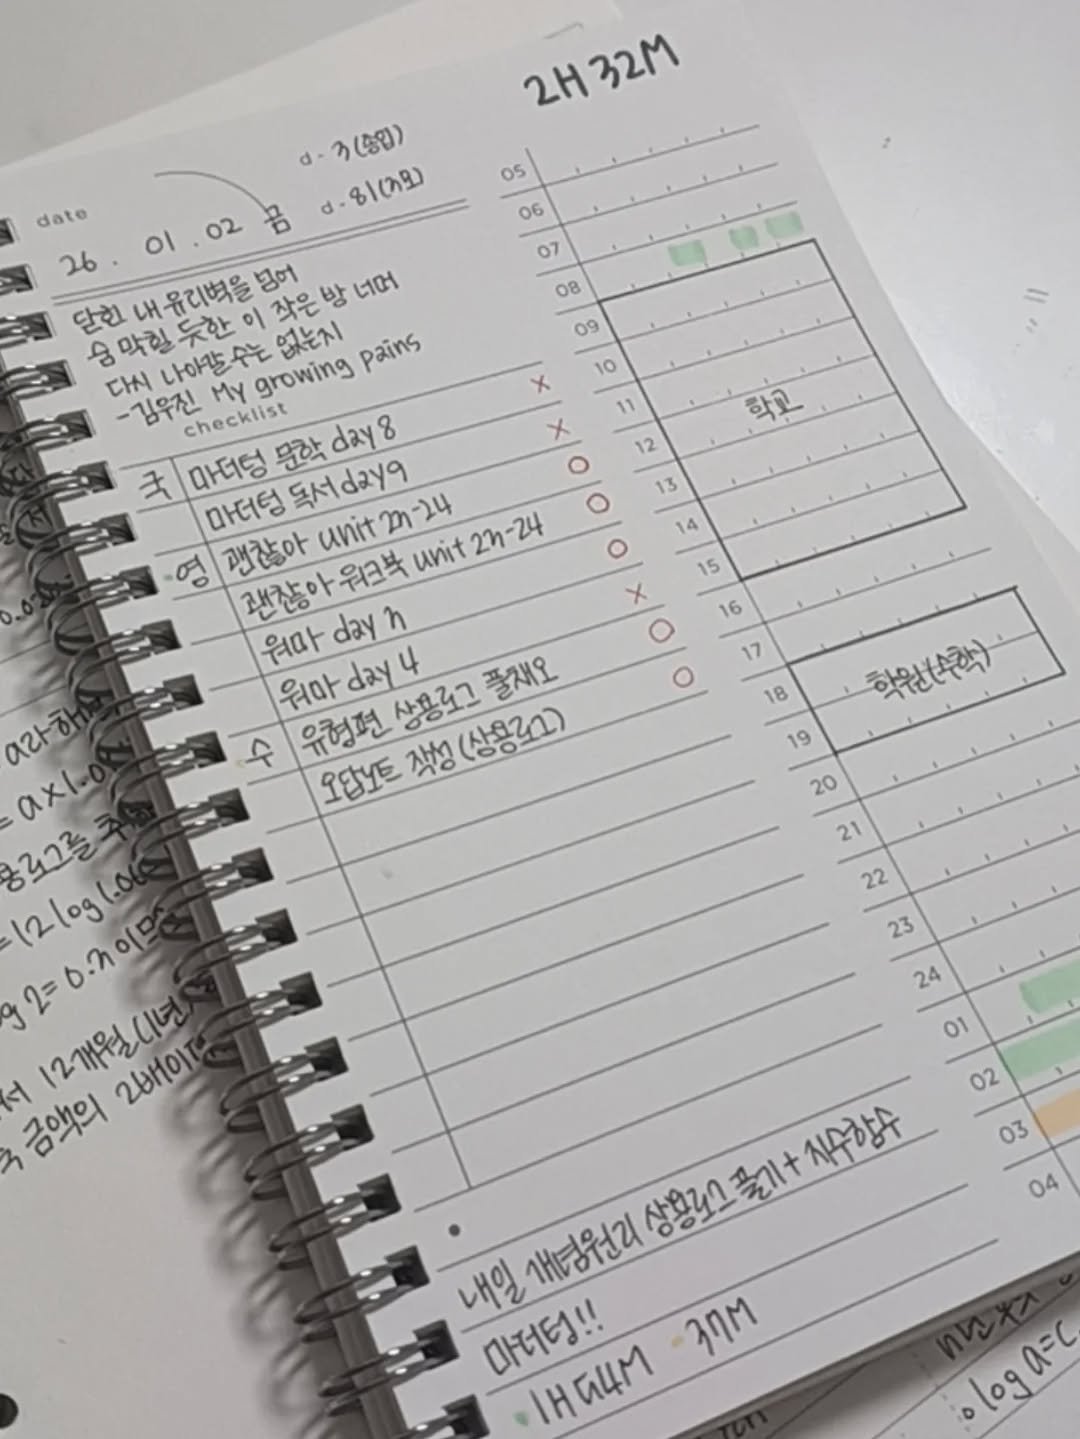 2H 32M
d-3(종업)
d-81(3모)
date
26. 01. 02 금
닫힌 내 유리벽을 넘어
숨 막힐 듯한 이 작은 방 너머
다시 나아갈 수는 없는지
-김우진 My growing pains
checklist
국 마더텅 문학 day 8 X
마더텅 독서 day 9 X
영 괜찮아 unit 23-24 O
괜찮아 워크북 unit 23-24 O
워마 day 3 O
워마 day 4 X
수 유형편 상용로그 풀채오 O
오답노트 작성(상용로그) O
05
06
07
08
09
10
11
12
13
14
15
16
17
18
19
20
21
22
23
24
01
02
03
04
학교
학원(수학)
내일 개념원리 상용로그 풀기+지수함수
마더텅!!
1H 54M 37M
a라 해
= a×1.0
용로그를 추
=12 log 1.06
g 2=0.3이므
서 12개월(1년)
금액의 2배이
log a=